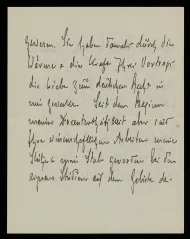 gewesen. Sie haben damals durch die
Wärme & die Kraft Ihres Vortrags
die Liebe zum deutschen Recht in
mir geweckt. Seit dem Beginn
meiner Docententhätigkeit aber sind
Ihre wissenschaftlichen Arbeiten meine
Stütze & mein Stab geworden bei den
eigenen Studien auf dem Gebiete de-